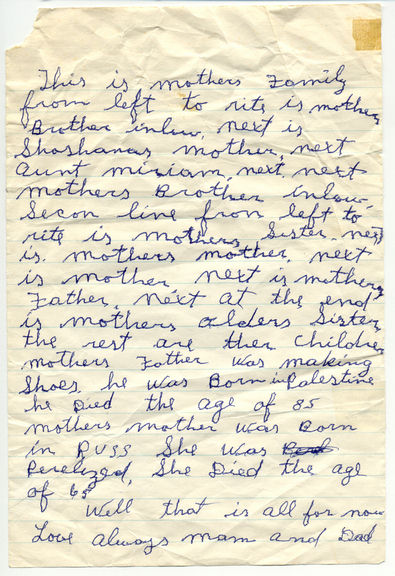 This is mothers Family
from left to rite is mothers
Brother inlow, next is
Shoshanas mother, next
Aunt miriam, next, next
mothers Brother inlow,
Secon line from left to
rite is mothers Sister next
is. mothers mother, next
is mother, next is mothers
Father, next at the end
is mothers olders Sister,
the rest are ther children
mothers Father was making
Shoes, he was Born in Palestine
he Died the age of 85
mothers mother was Born
in Russ She was
Perelized, She Died the age
of 65
Well that is all for now
Love always mom and Dad